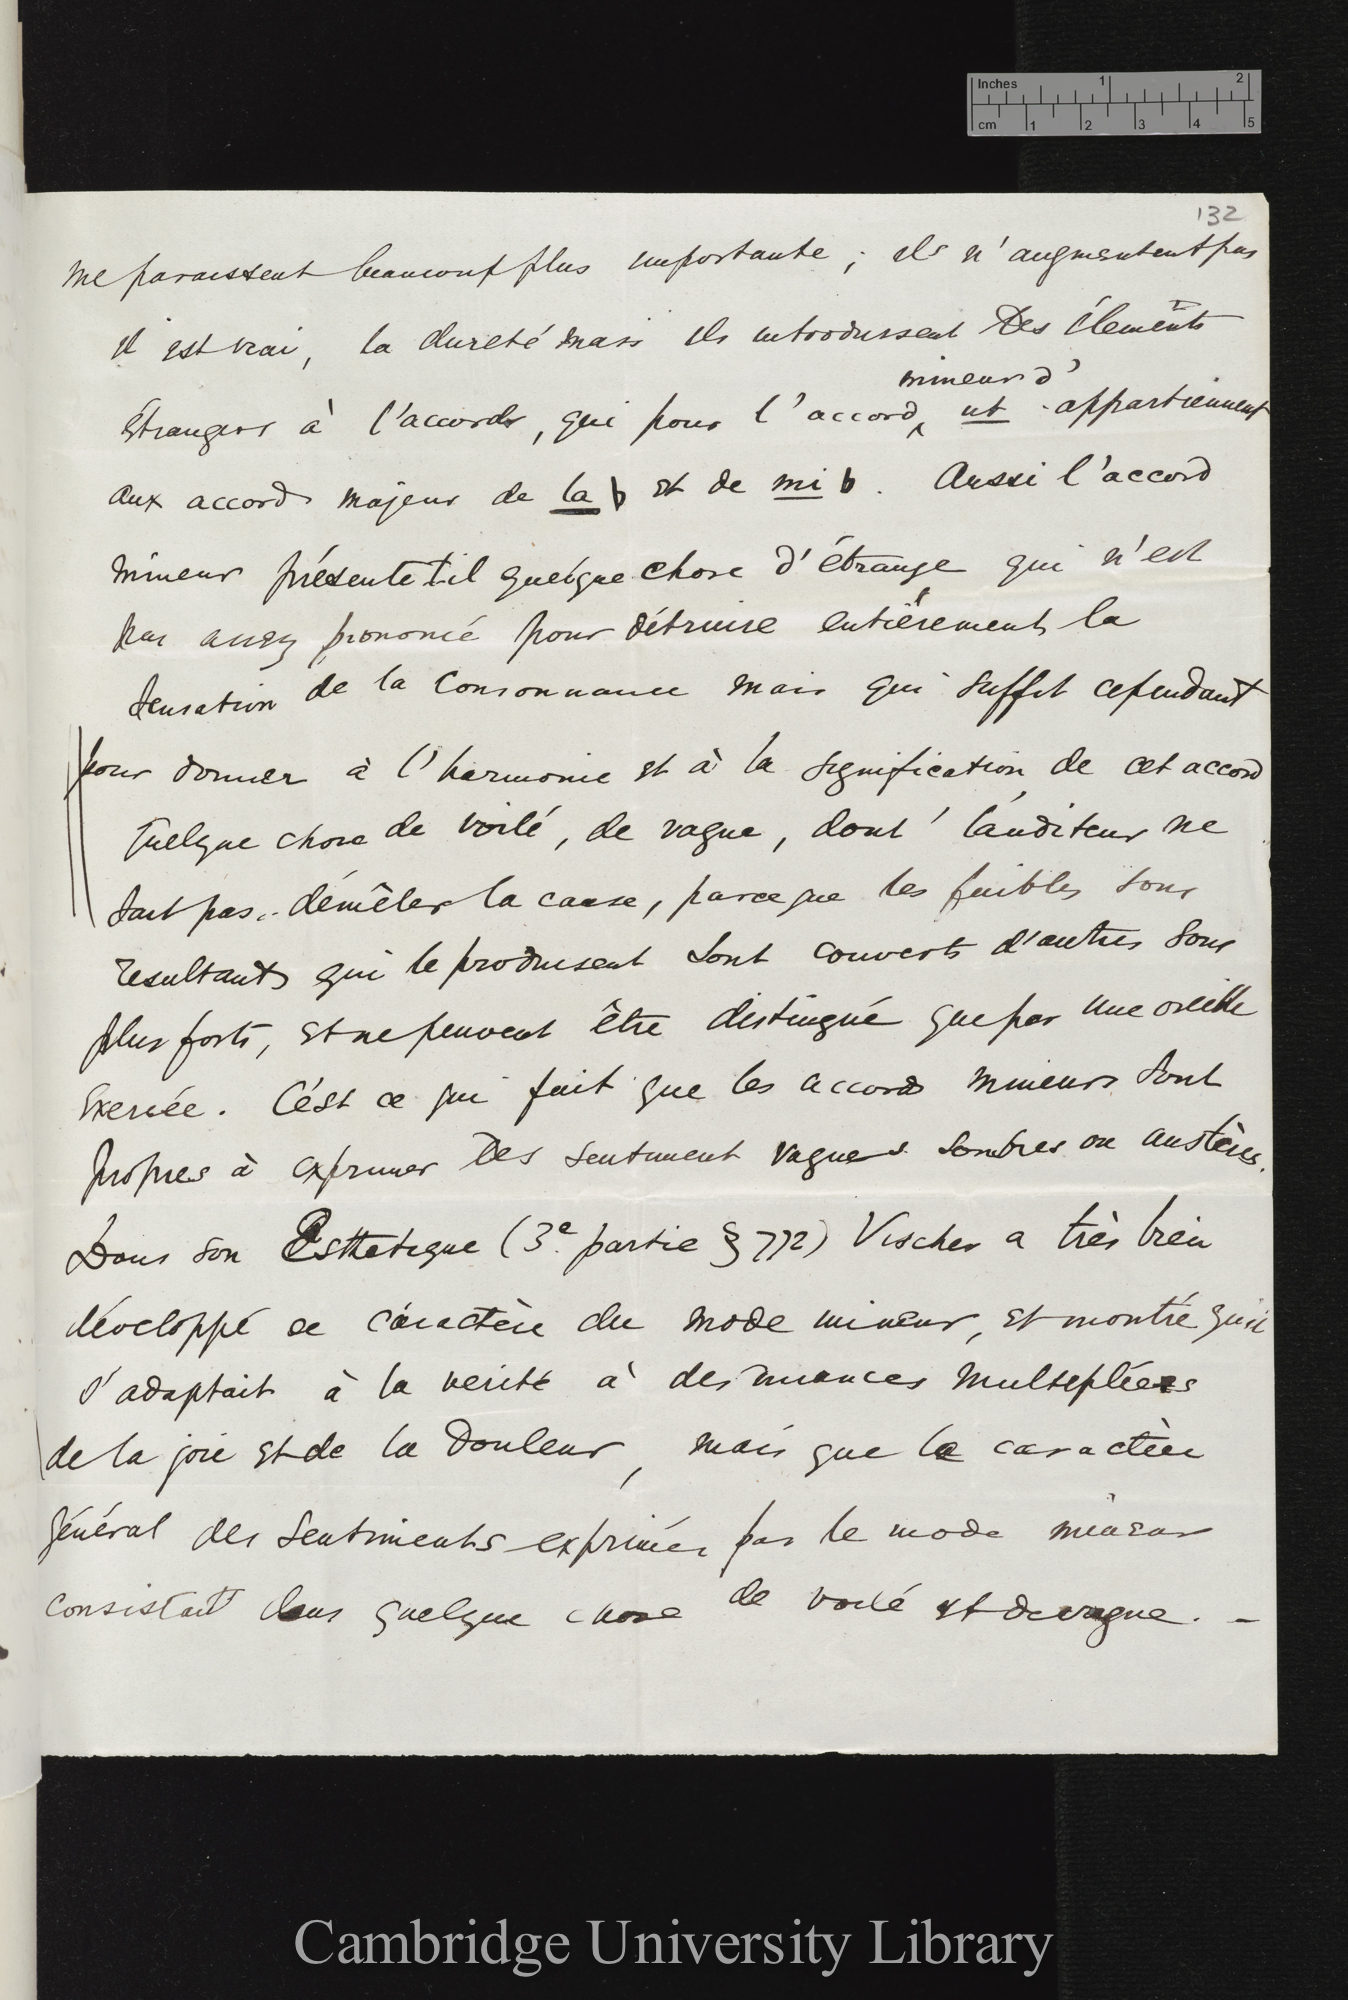 Inches 1 2
cm 1 2 3 4 5
132
me paraissent beaucoup plus importante ; ils n'augmentent pas
il est vrai, la dureté mais ils introduisent des éléments
mineur d'
étrangers à l'accords, qui pour l'accord ‸ ut appartiennent
aux accords majeur de la b et de mi b. Aussi l'accord
mineur présente t'il quelque chose d'étrange qui n'est
pas assez prononcé pour détruire entièrement la
sensation de la consonnance mais qui suffit cependant
pour donner à l'harmonie et à la signification de cet accord
quelque chose de voilé, de vague, dont l'auditeur ne
sait pas démêler la cause, parceque les faibles sons
resultants qui le produisent sont couverts d'autres sons
plus forts, et ne peuvent être distingué que par une oreille
exercée. C'est ce qui fait que les accords mineurs sont
propres à exprimer des sentiment vagues sombres ou austères.
Dans son Esthetique (3e partie § 772) Vischer a très bien
développé ce caractère du mode mineur, et montré qu'il
s'adaptait à la verité à des nuances multipliées
de la joie et de la douleur, mais que le caractère
général des sentiments exprimés par le mode mineur
consistait dans quelque chose de voilé et de vague. –
Cambridge University Library